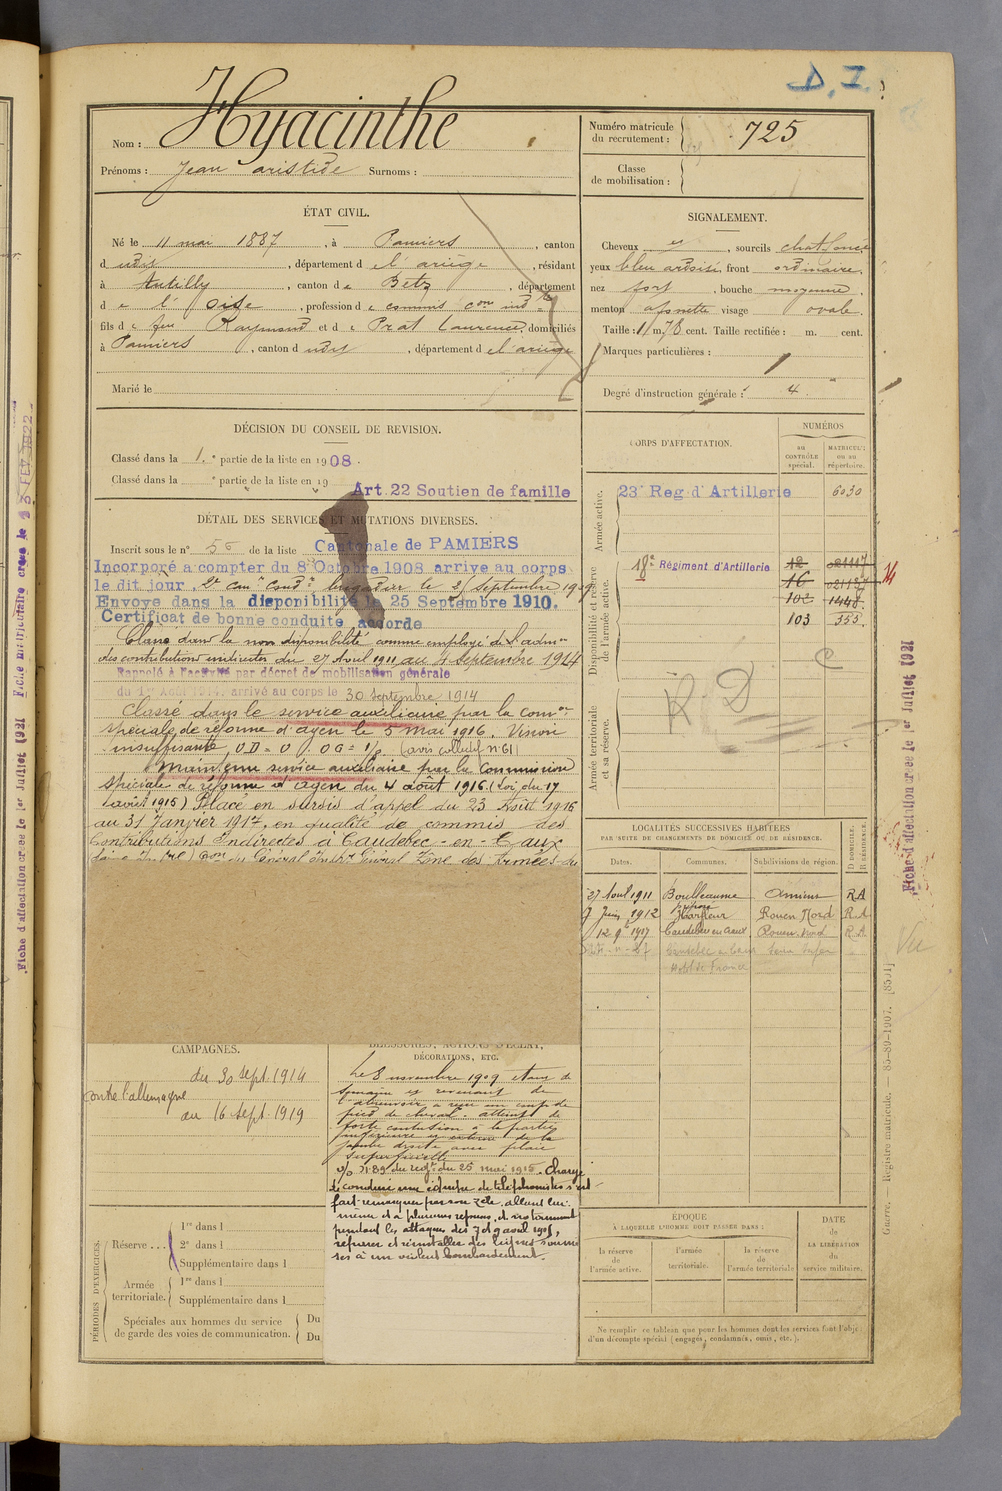 D. I.
Nom : Hyacinthe
Prénoms : Jean aristide Surnoms :
Numéro matricule du recrutement : 725
Classe de mobilisation :
ÉTAT CIVIL.
Né le 11 mai 1887, à Pamiers, canton
d udit, département d e l'ariège, résidant
à Antilly, canton de Betz, département
d e l'oise, profession d e commis con ind tes
fils d e feu Raymond et d e Prat Laurence, domiciliés
à Pamiers, canton d udit, département d e l'ariège
Marié le
SIGNALEMENT.
Cheveux et, sourcils chat. foncé
yeux bleu ardoisé, front ordinaire,
nez fort, bouche moyenne,
menton visage ovale.
Taille : 1 m. 78 cent. Taille rectifiée : m. cent.
Marques particulières :
Degré d'instruction générale : 4
DÉCISION DU CONSEIL DE REVISION.
Classé dans la 1.e partie de la liste en 1908.
Classé dans la e partie de la liste en 19
Art. 22 Soutien de famille
DÉTAIL DES SERVICES ET MUTATIONS DIVERSES.
Inscrit sous le n° 56 de la liste Cantonale de PAMIERS
Incorporé a compter du 8 Octobre 1908 arrive au corps
le dit jour, 2e can er cond r brigadier le 25 septembre 1909
Envoye dans la disponibilité le 25 Septembre 1910.
Certificat de bonne conduite accorde
Classé dans la non disponibilité comme employé de l'adm on
des contributions indirectes du 27 Avril 1911 au 4 Septembre 1914
Rappelé à l'activité par décret de mobilisation générale
du 1er Août 1914. arrivé au corps le 30 septembre 1914
Classé dans le service auxiliaire par la Com on
spéciale de réforme d'agen le 5 mai 1916. Vision
insuffisante, (avis collectif n° 61)
Maintenu service auxiliaire par la Commission
Spéciale de réforme d'agen du 4 août 1916. (Loi du 17
août 1915) Placé en sursis d'appel du 23 Août 1916
au 31 Janvier 1917, en qualité de commis des
Contributions Indirectes à Caudebec-en-Caux
(Seine Inf re) on du Général Général Zone des Armées du
CORPS D'AFFECTATION.
NUMÉROS
AU CONTRÔLE spécial.
MATRICULE ou au répertoire.
Armée active.
23e Reg d'Artillerie 6030
Disponibilité et réserve de l'armée active.
18e Régiment d'Artillerie
12 021117
16 021127 14
102 1448
103 355
R D C
Armée territoriale et sa réserve.
LOCALITÉS SUCCESSIVES HABITÉES
PAR SUITE DE CHANGEMENTS DE DOMICILE OU DE RÉSIDENCE.
Dates. Communes. Subdivisions de région. D DOMICILE. R RÉSIDENCE.
27 Avril 1911 Bouilleaume Amiens R.A
9 Juin 1912 Harfleur Rouen Nord R.A
12 9bre 1917 Caudebec en Caux Rouen Nord R.A
Hôtel de France
Vu
CAMPAGNES.
contre l'allemagne
du 30 sept. 1914
au 16 sept. 1919
BLESSURES, ACTIONS D'ÉCLAT, DÉCORATIONS, ETC.
Le 8 novembre 1909 étant de
semaine et revenant de
l'abreuvoir a reçu un coup de
pied de cheval. atteint de
forte contusion à la partie
inférieure et externe de la
jambe droite avec plaie
superficielle
%o n° 89 du régt du 25 mai 1915. Chargé
de conduire une équipe de téléphonistes s'est
fait remarquer par son zèle, allant lui-
même et à plusieurs reprises, et notamment
pendant les attaques des 7 et 9 avril 1915,
réparer et réinstaller des lignes soumi
ses à un violent bombardement.
PÉRIODES D'EXERCICES.
Réserve ...
1re dans l
2e dans l
Supplémentaire dans l
Armée territoriale.
1re dans l
Supplémentaire dans l
Spéciales aux hommes du service de garde des voies de communication.
Du
Du
ÉPOQUE
À LAQUELLE L'HOMME DOIT PASSER DANS :
la réserve de l'armée active.
l'armée territoriale.
la réserve de l'armée territoriale
DATE de LA LIBÉRATION du service militaire.
Ne remplir ce tableau que pour les hommes dont les services font l'objet
d'un décompte spécial (engagés, condamnés, omis, etc.).
Fiche d'affectation créée le 1er Juillet 1921
Guerre. — Registre matricule. — 85-89-1907. [8501]
Fiche d'affectation créée le 1er Juillet 1921
Fiche matriculaire créée le 13 FEV 1922